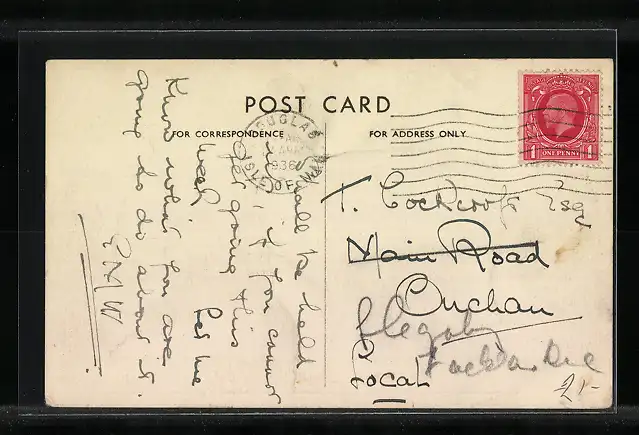 POST CARD
FOR CORRESPONDENCE
FOR ADDRESS ONLY
DOUGLAS
1936
ISLE OF MAN
ONE PENNY
1 1
shall be held
if you cannot
get going this
week. Let me
know what you are
going to do about it.
T. Cockcroft Esq
Main Road
Onchan
Local
2/-